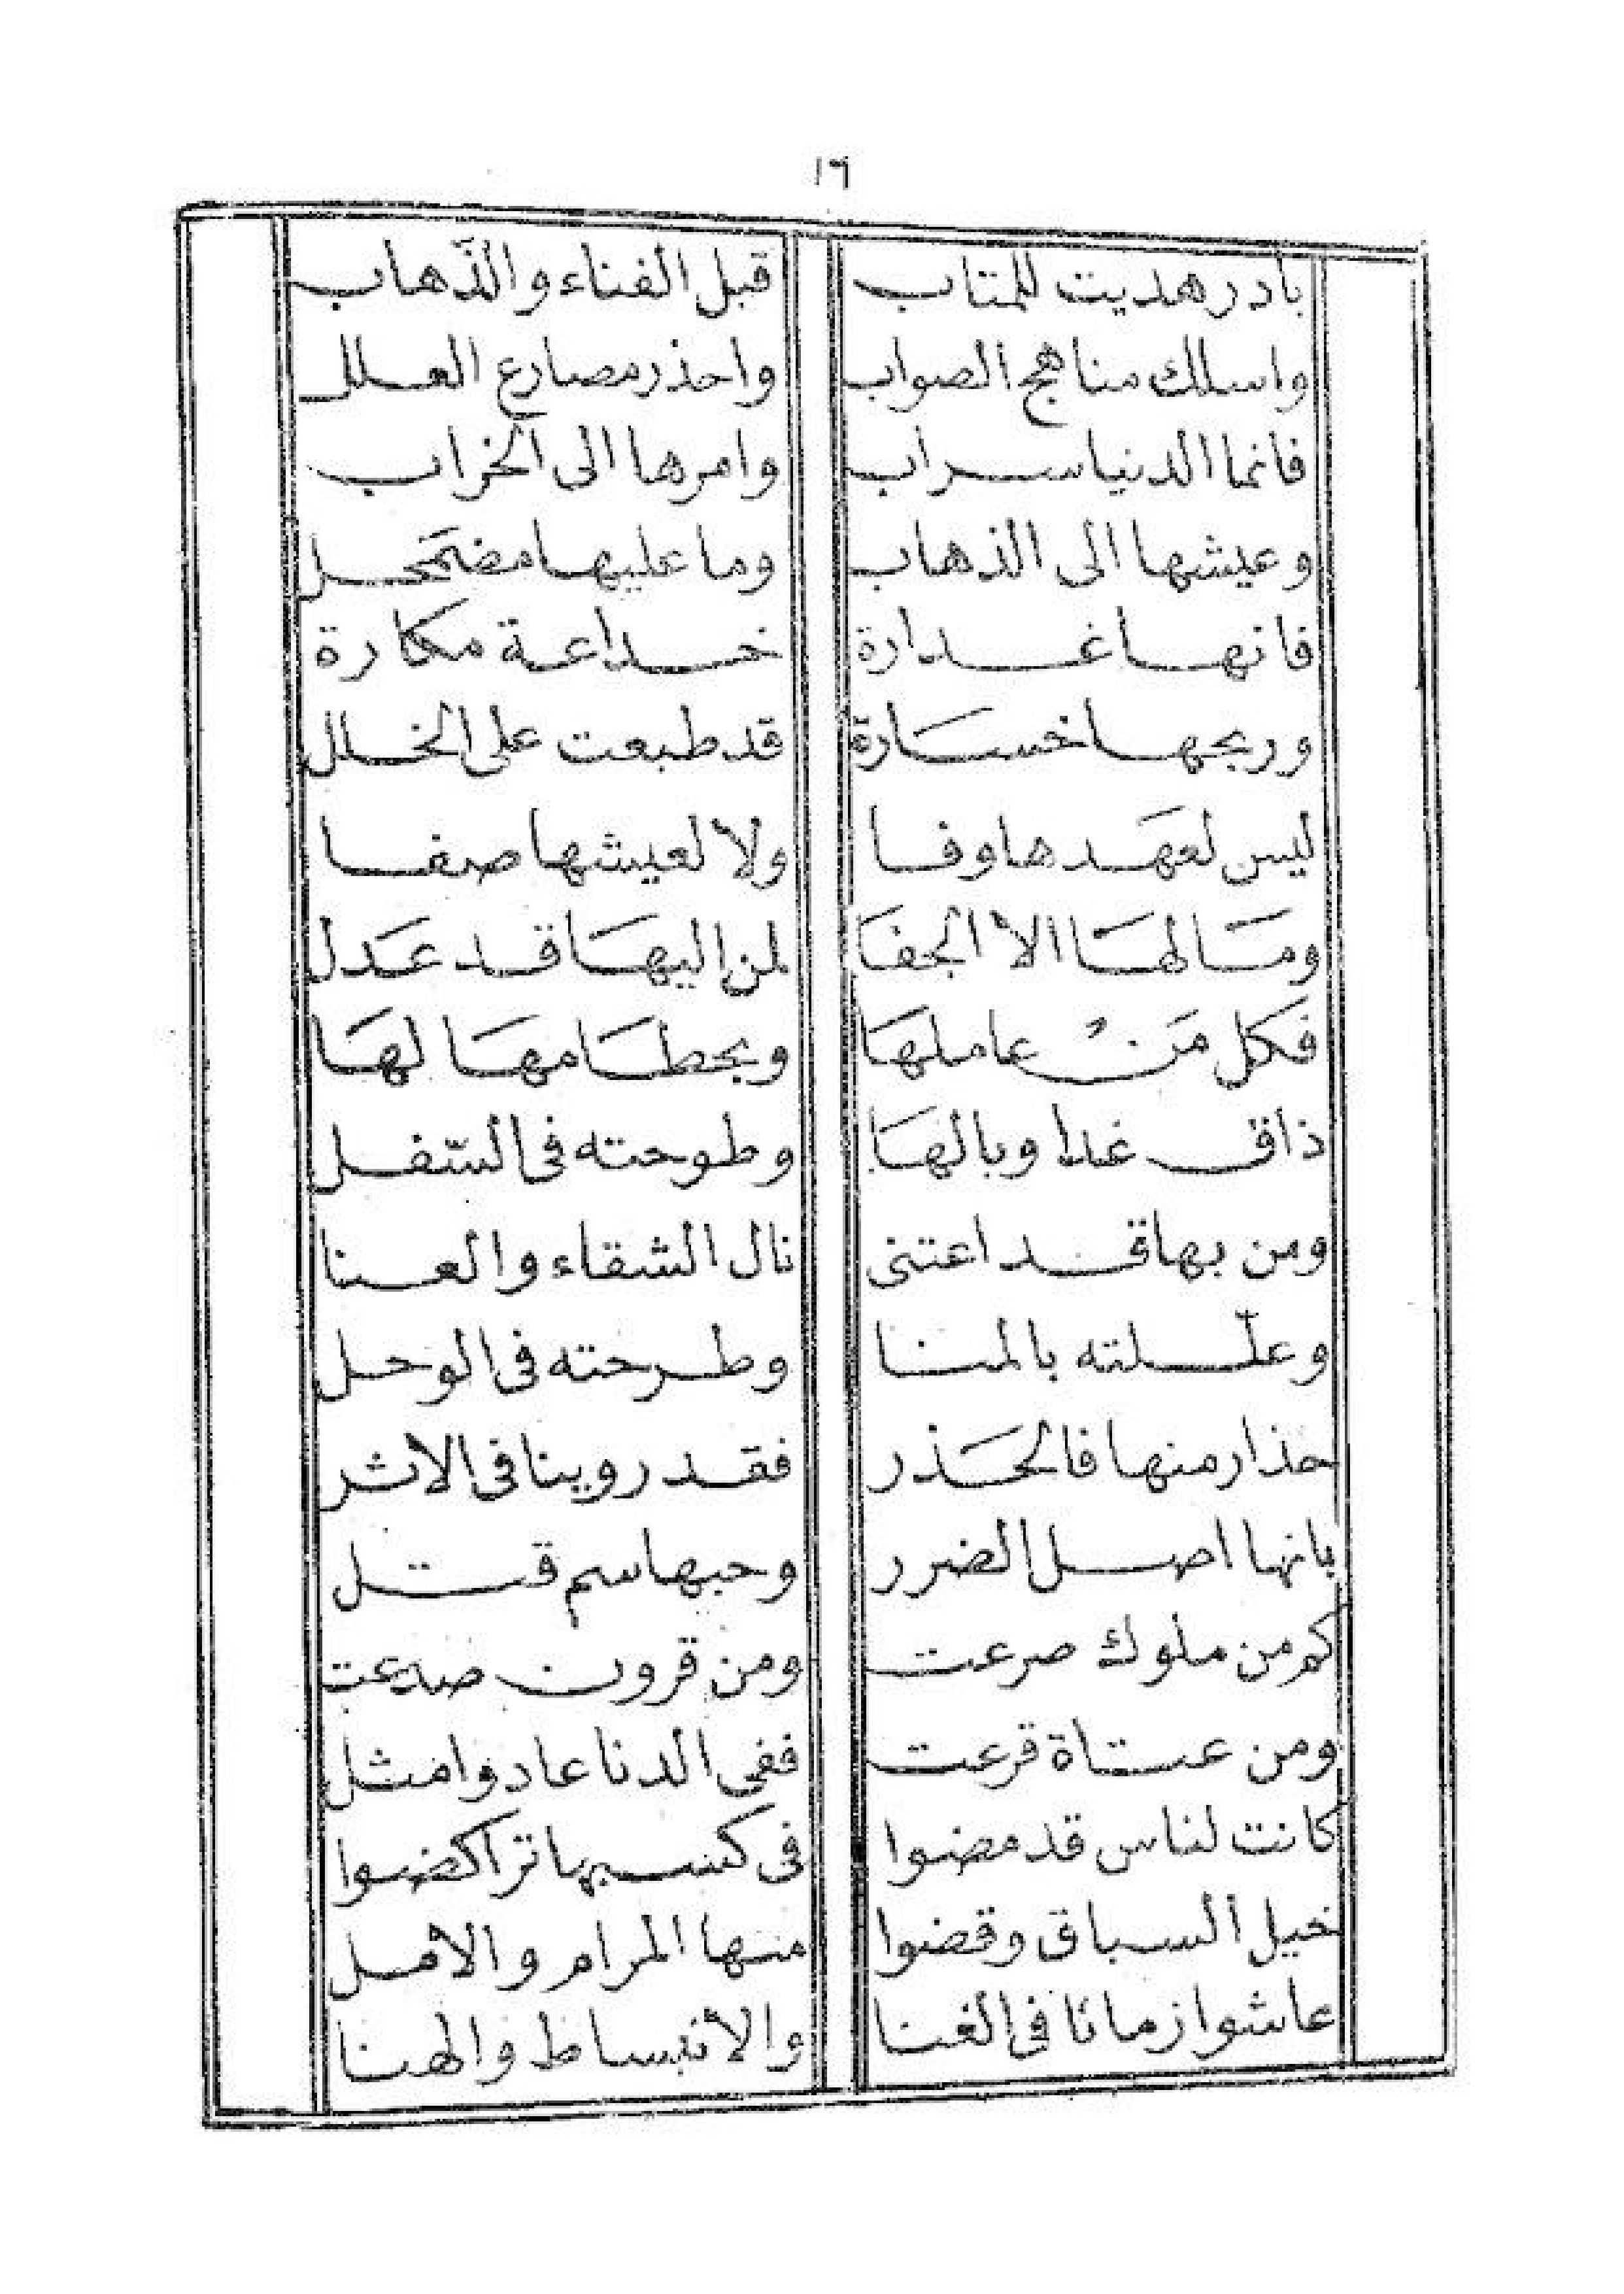 ١٦
بادر هديت للمتاب قبل الفناء والذّهاب
واسلك مناهج الصواب واحذر مصارع العلل
فانما الدنيا سراب وامرها الى الخراب
وعيشها الى الذهاب وما عليها مضمَحل
فانها غدارة خداعة مكارة
وربحها خسَارة قد طبعت على الخلل
ليس لعهَدها وفا ولا لعيشها صفا
ومَا لهَا الا الجفَا لمن اليهَا قد عَدل
فكل مَنْ عاملهَا وبحطَامهَا لهَا
ذاق غدا وبالهَا وطوحته فى السّفل
ومن بها قد اعتنى نال الشقاء والعنا
وعلّلته بالمنا وطرحته فى الوحل
حذار منها فالحَذر فقد روينا فى الاثر
بانها اصل الضرر وحبها سم قتل
كم من ملوك صرعت ومن قرون صدعت
ومن عتاة قرعت ففى الدنا عادوا مثل
كانت لناس قد مضوا فى كسبها تراكضوا
خيل السباق وقضوا منها المرام والأمل
عاشوا زمانا فى الغنا والأنبساط والهنا